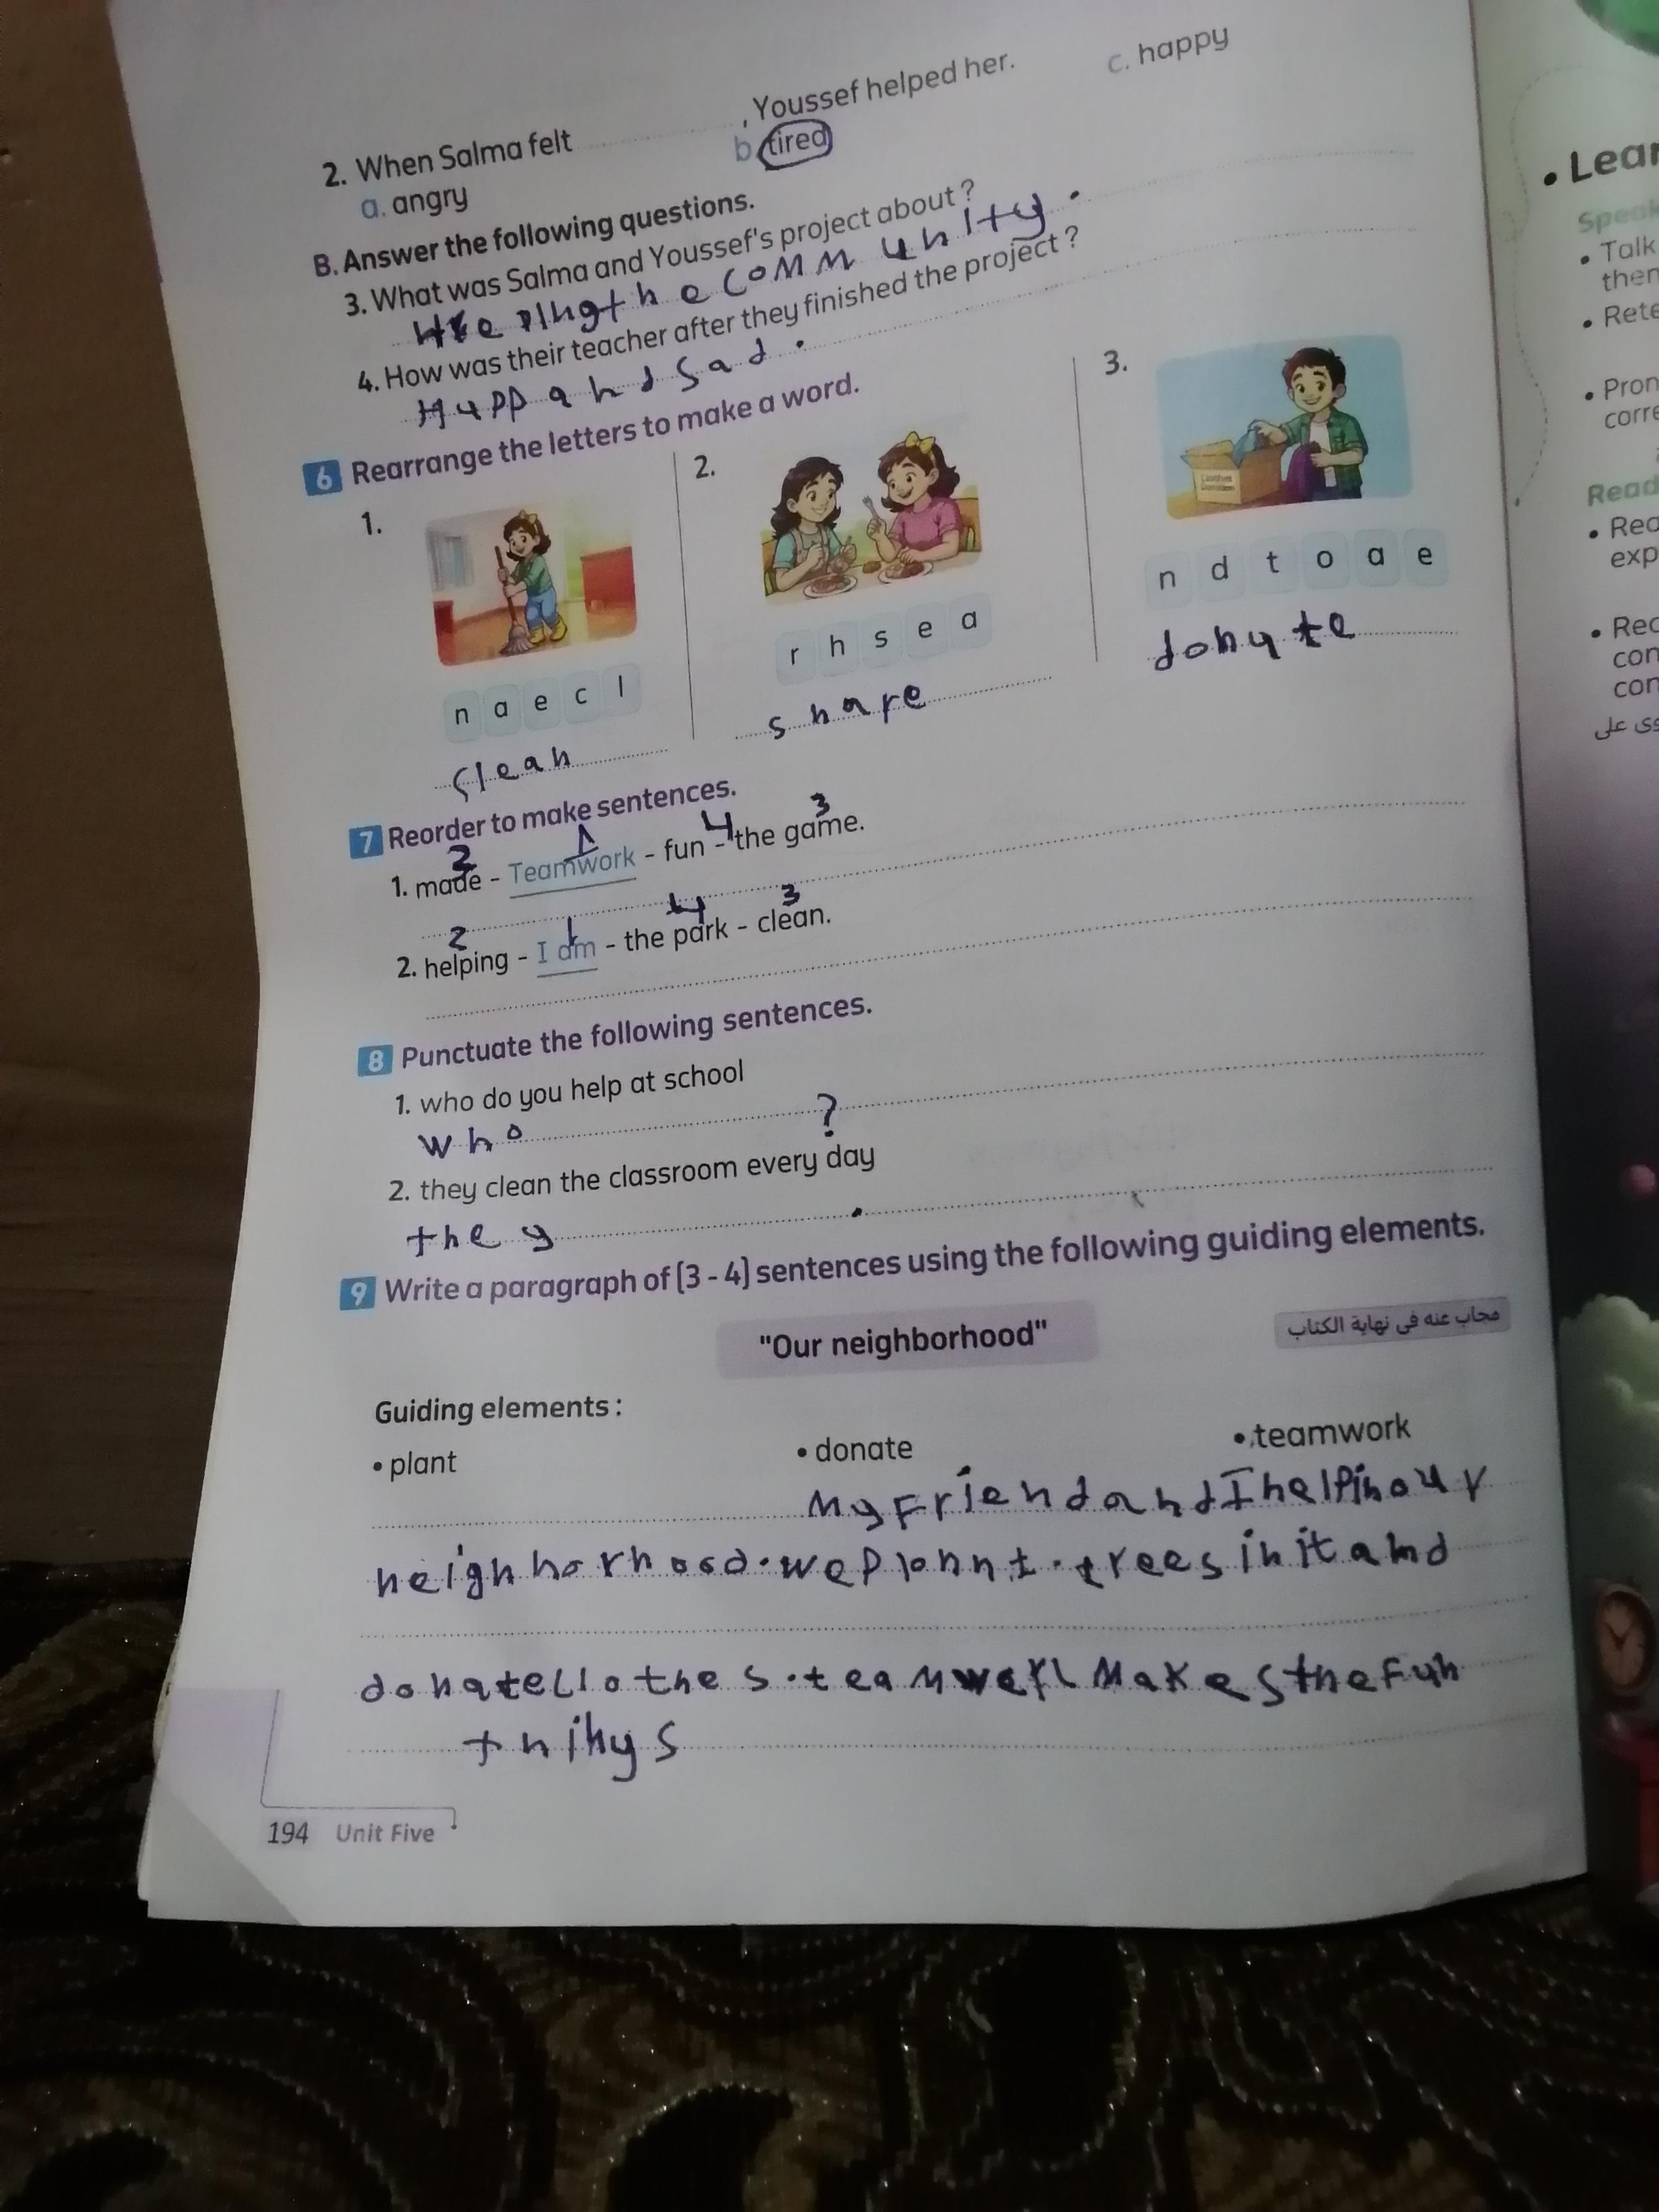 2. When Salma felt ............, Youssef helped her.
a. angry b. tired c. happy
B. Answer the following questions.
3. What was Salma and Youssef's project about?
the community.
4. How was their teacher after they finished the project?
Hupp and sad.
6 Rearrange the letters to make a word.
1. 2. 3.
Clothes Donation
n d t o a e
donyte
r h s e a
share
n a e c l
clean
7 Reorder to make sentences.
2 1 4 3
1. made - Teamwork - fun - the game.
2 1 4 3
2. helping - I am - the park - clean.
8 Punctuate the following sentences.
1. who do you help at school
who ?
2. they clean the classroom every day
they .
9 Write a paragraph of (3 - 4) sentences using the following guiding elements.
"Our neighborhood"
مجاب عنه في نهاية الكتاب
Guiding elements:
• plant • donate • teamwork
My Friend and I helpin our
neighhorhood. we plannt. trees in it and
donate makes the Fun
thinys
194 Unit Five
• Lear
Speak
• Talk
then
• Rete
• Pron
corre
Read
• Rea
exp
• Rec
con
con
وى على